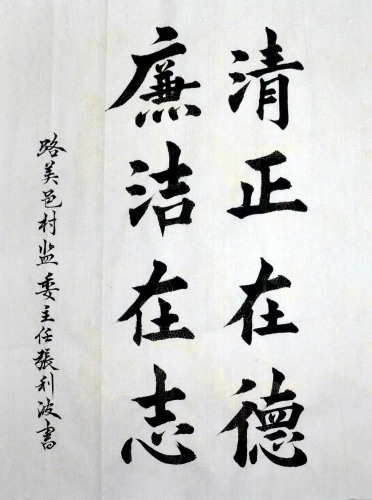 清正在德
廉洁在志
路美邑村监委主任張利波書